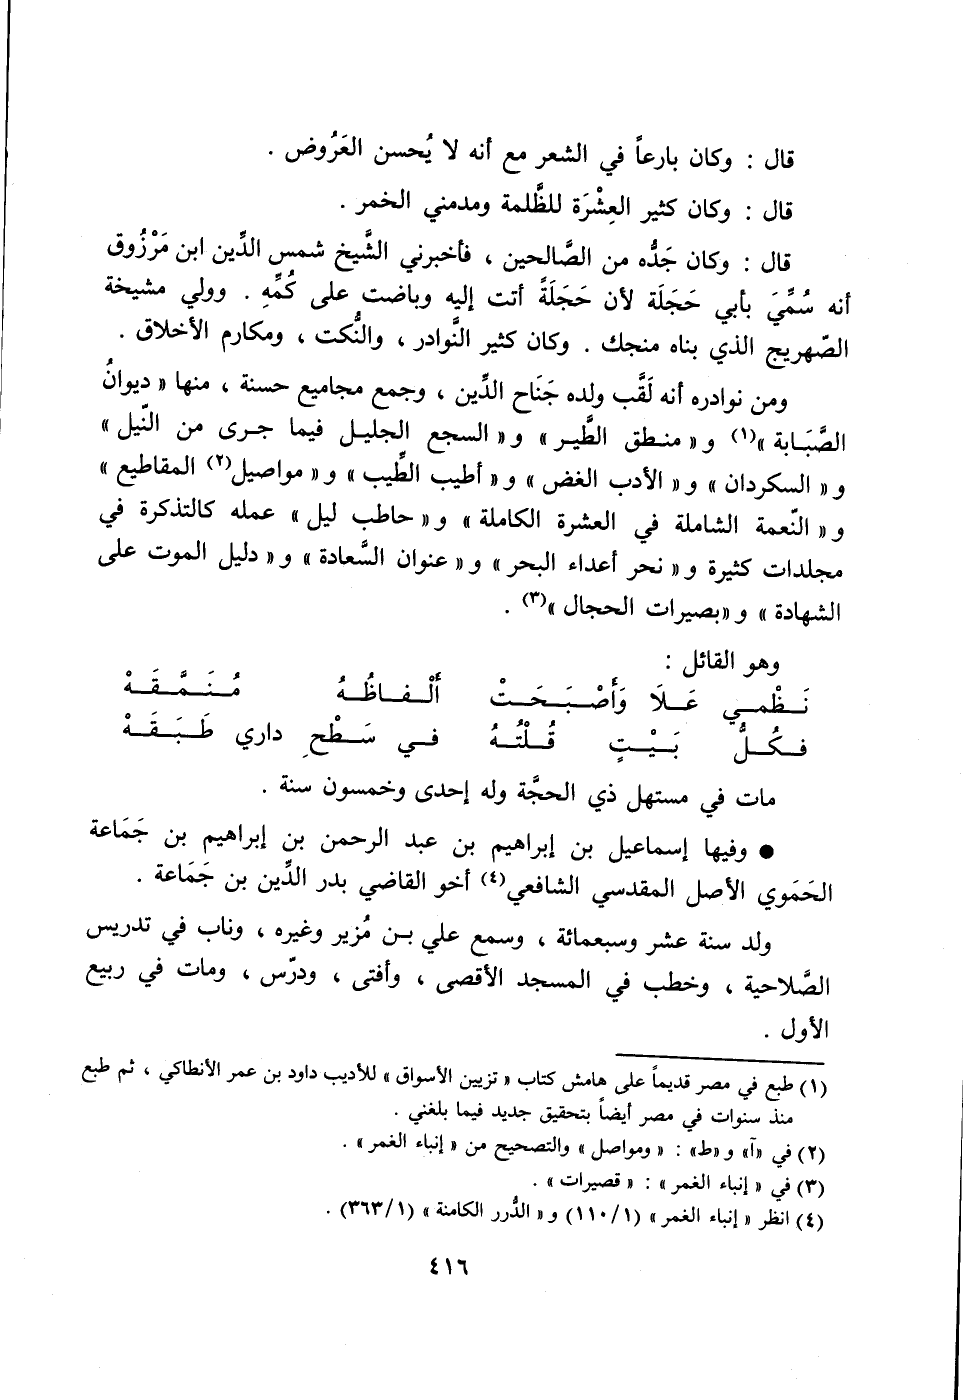 قال : وكان بارعاً في الشعر مع أنه لا يُحسن العَرُوض .
قال : وكان كثير العِشْرَة للظَّلمة ومدمني الخمر .
قال : وكان جَدُّه من الصَّالحين ، فأخبرني الشَّيخ شمس الدِّين ابن مَرْزُوق
أنه سُمِّيَ بأبي حَجَلَة لأن حَجَلَةً أتت إليه وباضت على كُمِّهِ . وولي مشيخة
الصّهريج الذي بناه منجك . وكان كثير النَّوادر ، والنُّكت ، ومكارم الأخلاق .
ومن نوادره أنه لَقَّب ولده جَنَاح الدِّين ، وجمع مجاميع حسنة ، منها « ديوانُ
الصَّبَابة »(١) و « منطق الطَّير » و « السجع الجليل فيما جرى من النّيل »
و « السكردان » و « الأدب الغض » و « أطيب الطِّيب » و « مواصيل(٢) المقاطيع »
و « النّعمة الشاملة في العشرة الكاملة » و « حاطب ليل » عمله كالتذكرة في
مجلدات كثيرة و « نحر أعداء البحر » و « عنوان السَّعادة » و « دليل الموت على
الشهادة » و «بصيرات الحجال »(٣) .
وهو القائل :
نَظْمي عَلَا وَأَصْبَحَتْ أَلْفاظُهُ مُنَمَّقَهْ
فكُلُّ بَيْتٍ قُلْتُهُ في سَطْحِ داري طَبَقَهْ
مات في مستهل ذي الحجَّة وله إحدى وخمسون سنة .
● وفيها إسماعيل بن إبراهيم بن عبد الرحمن بن إبراهيم بن جَمَاعة
الحَمَوي الأصل المقدسي الشافعي(٤) أخو القاضي بدر الدِّين بن جَمَاعة .
ولد سنة عشر وسبعمائة ، وسمع علي بن مُزير وغيره ، وناب في تدريس
الصَّلاحية ، وخطب في المسجد الأقصى ، وأفتى ، ودرّس ، ومات في ربيع
الأول .
(١) طبع في مصر قديماً على هامش كتاب « تزيين الأسواق » للأديب داود بن عمر الأنطاكي ، ثم طبع
منذ سنوات في مصر أيضاً بتحقيق جديد فيما بلغني .
(٢) في «آ» و «ط» : « ومواصل » والتصحيح من « إنباء الغمر » .
(٣) في « إنباء الغمر » : « قصيرات » .
(٤) انظر « إنباء الغمر » (١/ ١١٠) و « الدُّرر الكامنة » (١/ ٣٦٣) .
٤١٦